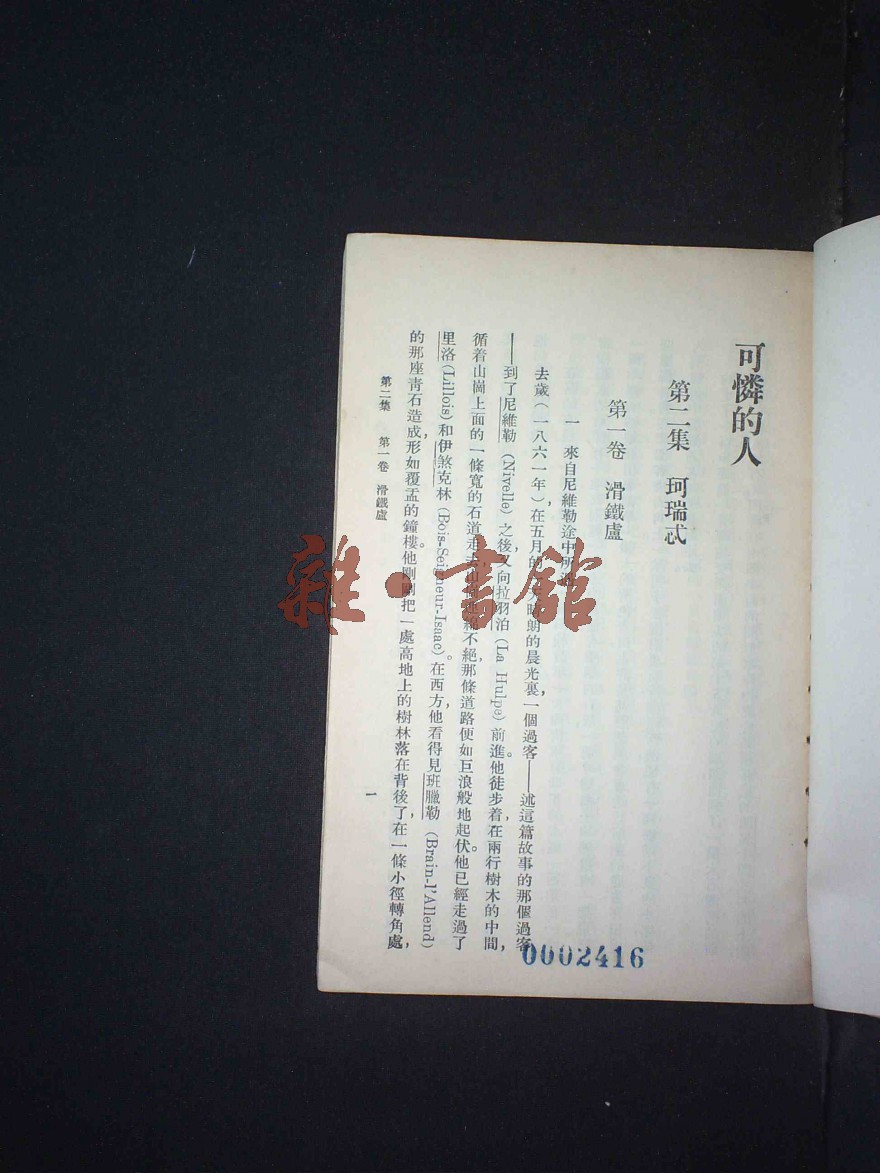 可憐的人
第二集 珂瑞忒
第一卷 滑鐵盧
一 來自尼維勒途中所
去歲(一八六一年),在五月的 晴朗的晨光裏,一個過客——述這篇故事的那個過客
——到了尼維勒(Nivelle)之後,又向拉羽泊(La Hulpe)前進。他徒步着,在兩行樹木的中間,
循着山崗上面的一條寬的石道走 不絕,那條道路便如巨浪般地起伏。他已經走過了
里洛(Lillois)和伊煞克林(Bois-Seigneur-Isaac)。在西方,他看得見班臘勒(Brain-l'Allend)
的那座青石造成形如覆盂的鐘樓。他剛剛把一處高地上的樹林落在背後了,在一條小徑轉角處,
第二集 第一卷 滑鐵盧
一
0002416
雜·書館